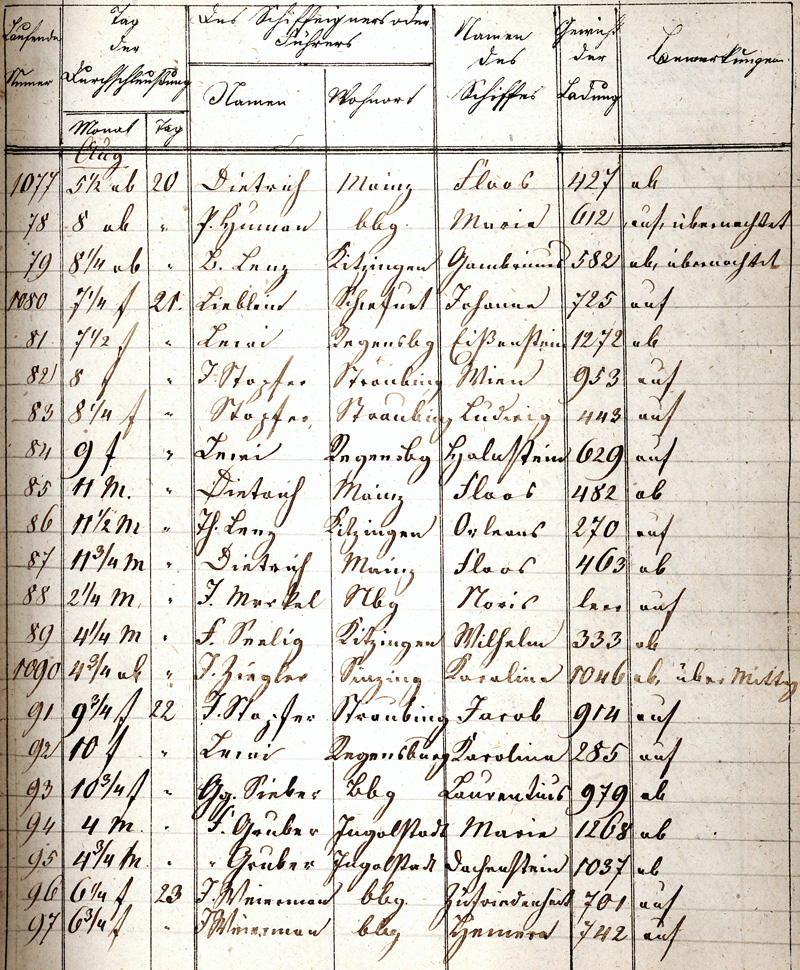 Laufende Numer | Tag der Durchschleußung | Des Schiffeigners oder Führers | Namen des Schiffes | Gewicht der Ladung | Bemerkungen
Monat | Tag | Namen | Wohnort
Aug
1077 5½ ab 20 Dietrich Mainz Floos 427 ab
78 8 ab " P. Human bbg. Maria 612 auf, übernachtet
79 8¼ ab " B. Lenz Kitzingen Gambrinus 582 ab, übernachtet
1080 7¼ f 21. Lieblein Johanna 725 auf
81 7½ f " Regensbg 1272 ab
82 8 f " J. Stopfer Straubing Wien 953 auf
83 8¼ f " Stopfer, Straubing Ludwig 443 auf
84 9 f " Regensbg 629 auf
85 11 M. " Dietrich Mainz Floos 482 ab
86 11½ M " Th. Lenz Kitzingen Orleans 270 auf
87 11¾ M " Dietrich Mainz Floos 463 ab
88 2¼ M. " J. Merkel Nbg Noris leer auf
89 4¼ M " F. Seelig Kitzingen Wilhelm 333 ab
1090 4¾ ab " J. Ziegler Sinzing Karolina 1046 ab, über Mittag
91 9¾ f 22 J. Stopfer Straubing Jacob 914 auf
92 10 f " Regensburg Karolina 285 auf
93 10¾ f " Gg. Sieber Bbg Laurentius 979 ab
94 4 M. " F. Gruber Ingolstadt Maria 1268 ab
95 4¾ M. " " Gruber Ingolstadt Dachenstein 1037 ab
96 6¼ f 23 J. Weierman bbg. Zufriedenheit 701 auf
97 6¾ f " J Weierman bbg 742 auf